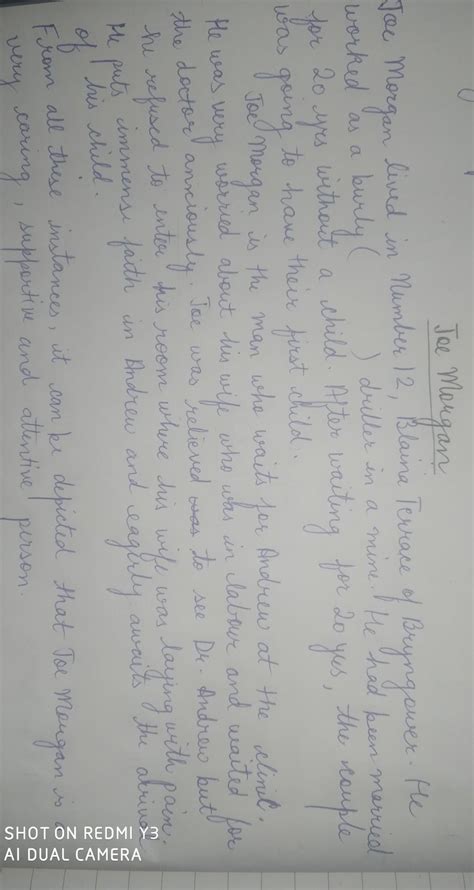 Joe Morgan
Joe Morgan lived in Number 12, Blaina Terrace of Bryngower. He
worked as a burly ( ) driller in a mine. He had been married
for 20 yrs without a child. After waiting for 20 yrs, the couple
was going to have their first child.
Joe Morgan is the man who waits for Andrew at the clinic.
He was very worried about his wife who was in labour and waited for
the doctor anxiously. Joe was relieved to see Dr. Andrew but
he refused to enter his room where his wife was laying with pain.
He puts immense faith in Andrew and eagerly awaits the arrival
of his child.
From all these instances, it can be depicted that Joe Morgan is a
very caring, supportive and attentive person.
SHOT ON REDMI Y3
AI DUAL CAMERA